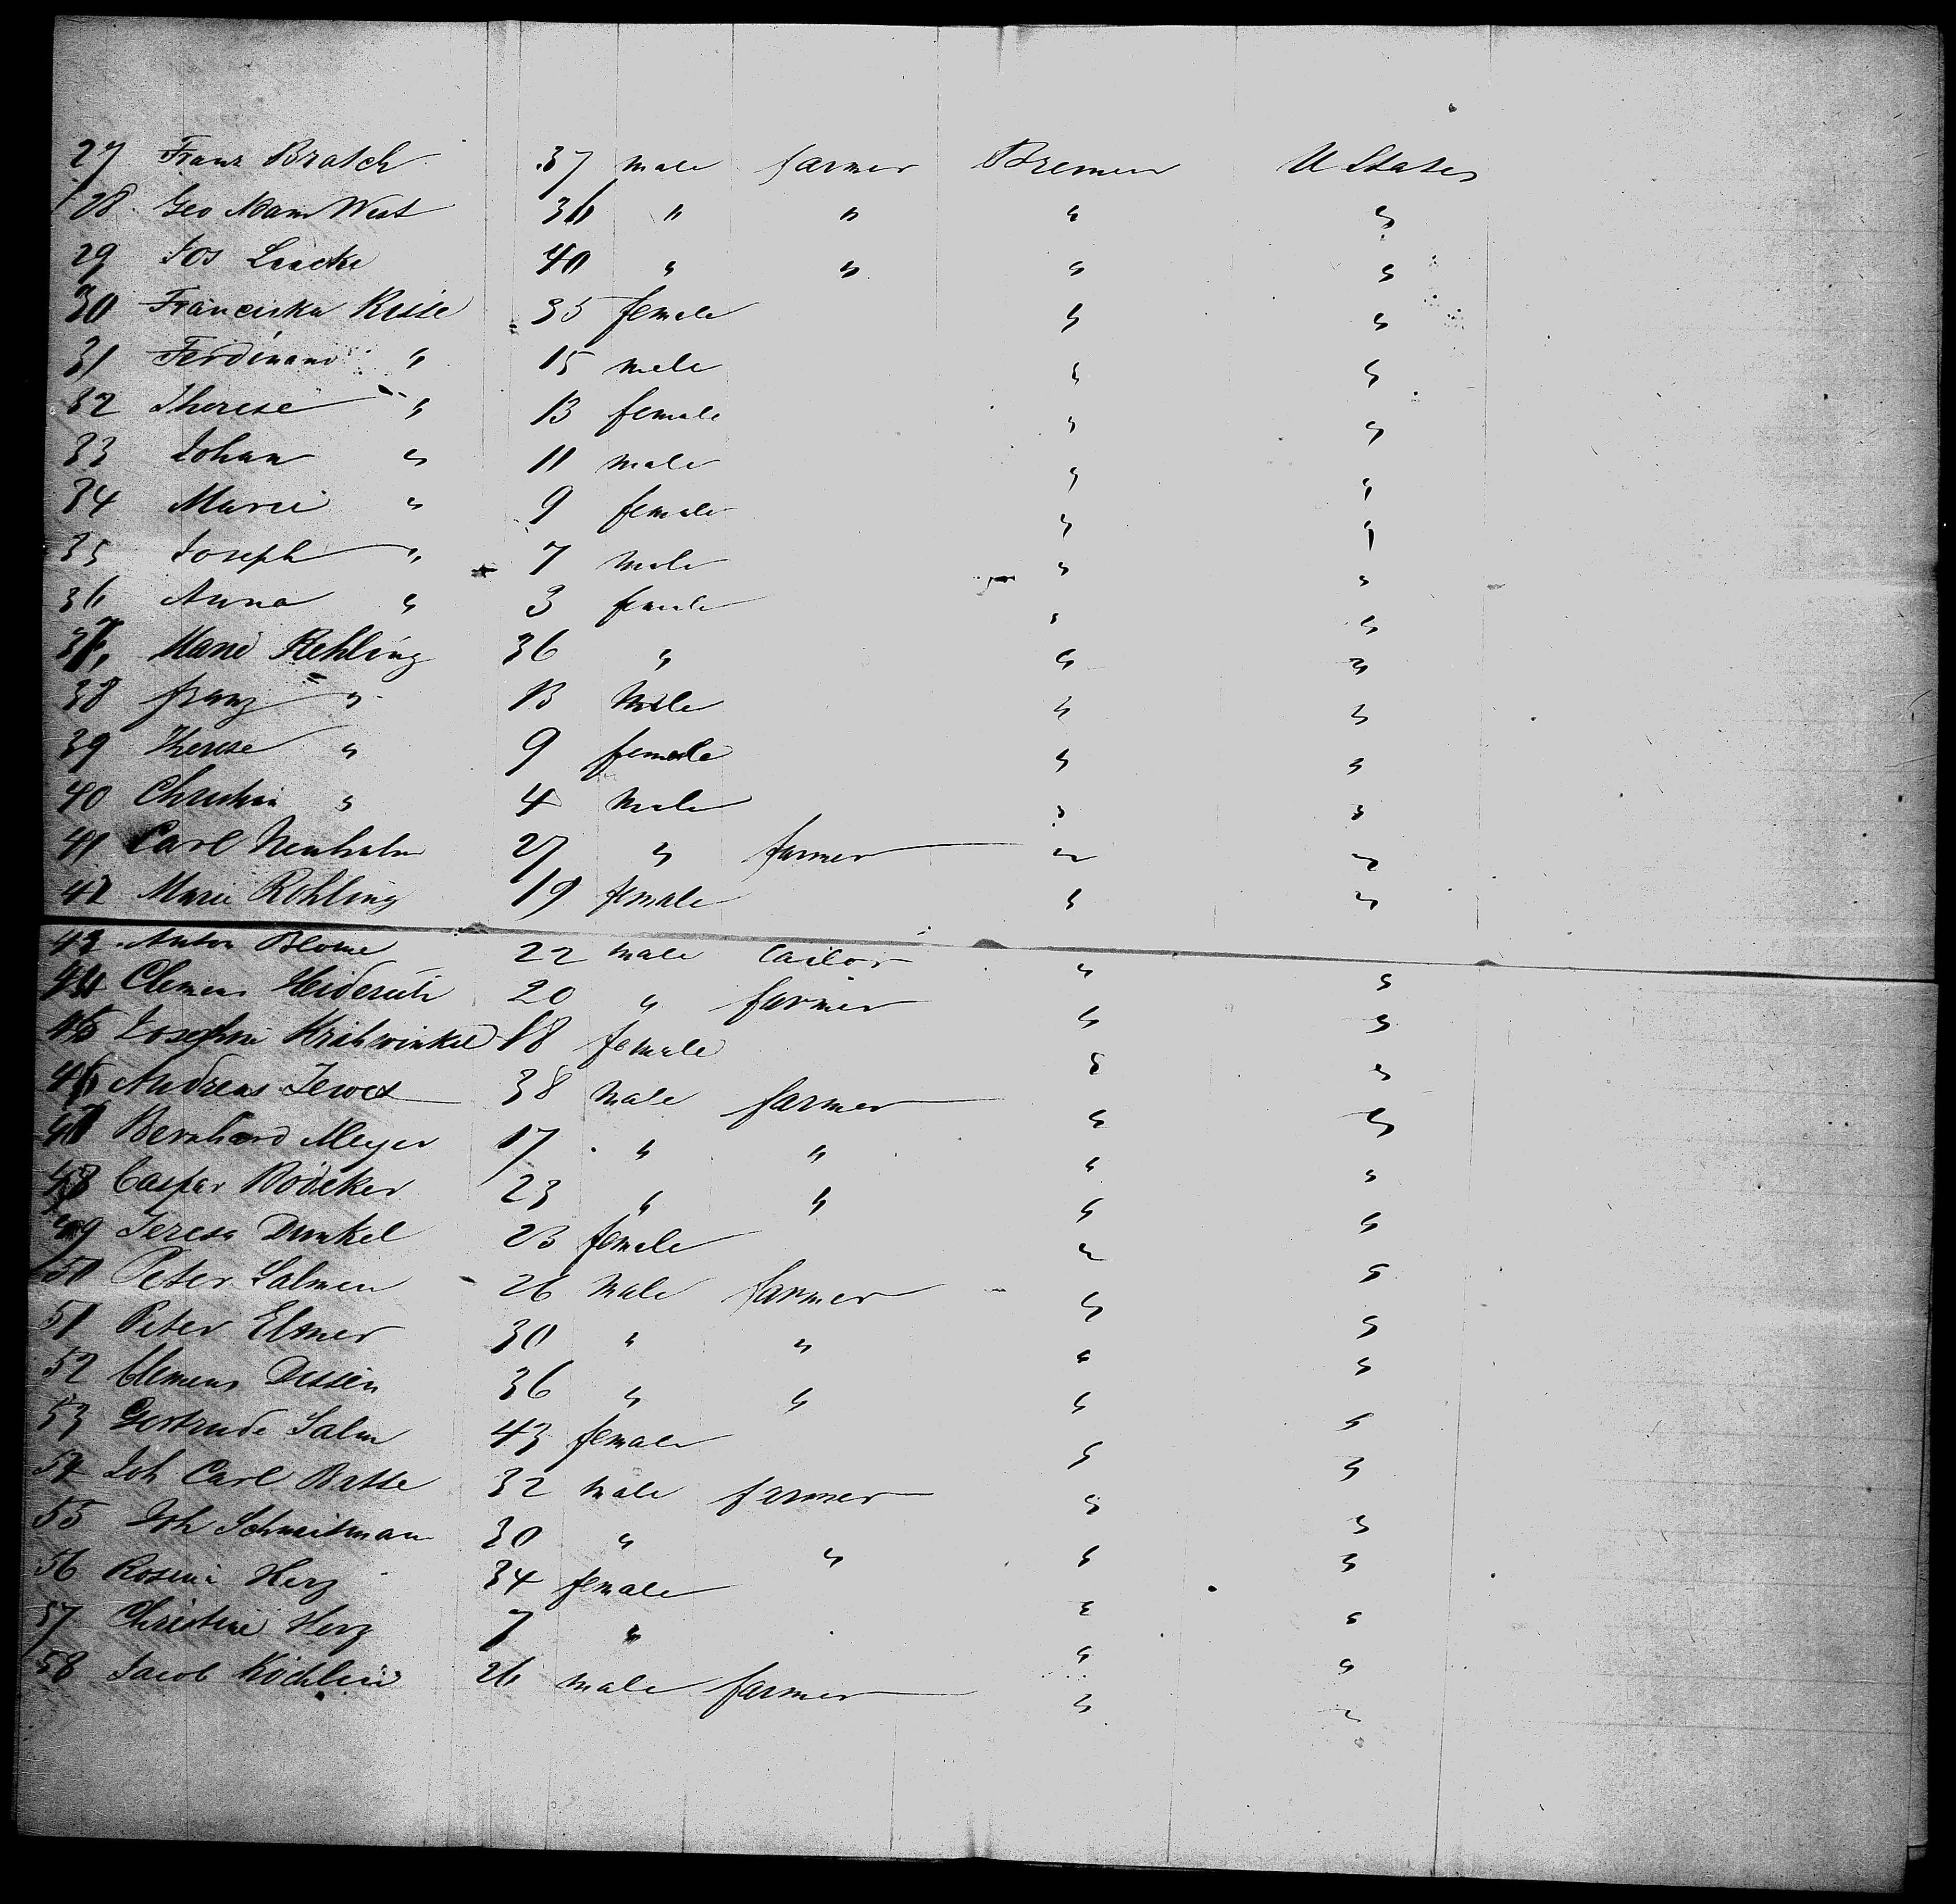 27 Franz Bratsch 37 male farmer Bremen U States
28 Geo Adam West 36 " " " "
29 Jos Luecke 40 " " " "
30 Franciska Risse 35 female " "
31 Ferdinand " 15 male " "
32 Therese " 13 female " "
33 Johan " 11 male " "
34 Marie " 9 female " "
35 Joseph " 7 male " "
36 Anna " 3 female " "
37 Marie Rehling 36 " " "
38 franz " 13 male " "
39 Therese " 9 female " "
40 Christian " 4 male " "
41 Carl 27 " farmer " "
42 Marie Rohling 19 female " "
43 Anton Blome 22 male tailor " "
44 Clemens 20 " farmer " "
45 Josephine Krähwinkel 18 female " "
46 Andreas 38 male farmer " "
47 Bernhard Meyer 17 " " " "
48 Caspar Bödeker 23 " " " "
49 Teresa Dunkel 23 female " "
50 Peter Salmen 26 male farmer " "
51 Peter Elsner 30 " " " "
52 Clemens Dessen 36 " " " "
53 Gertrude Salm 43 female " "
54 Joh Carl Batte 32 male farmer " "
55 Joh Schmitman 30 " " " "
56 Rosine Herz 34 female " "
57 Christine Herz 7 " " "
58 Jacob Köchlin 26 male farmer " "